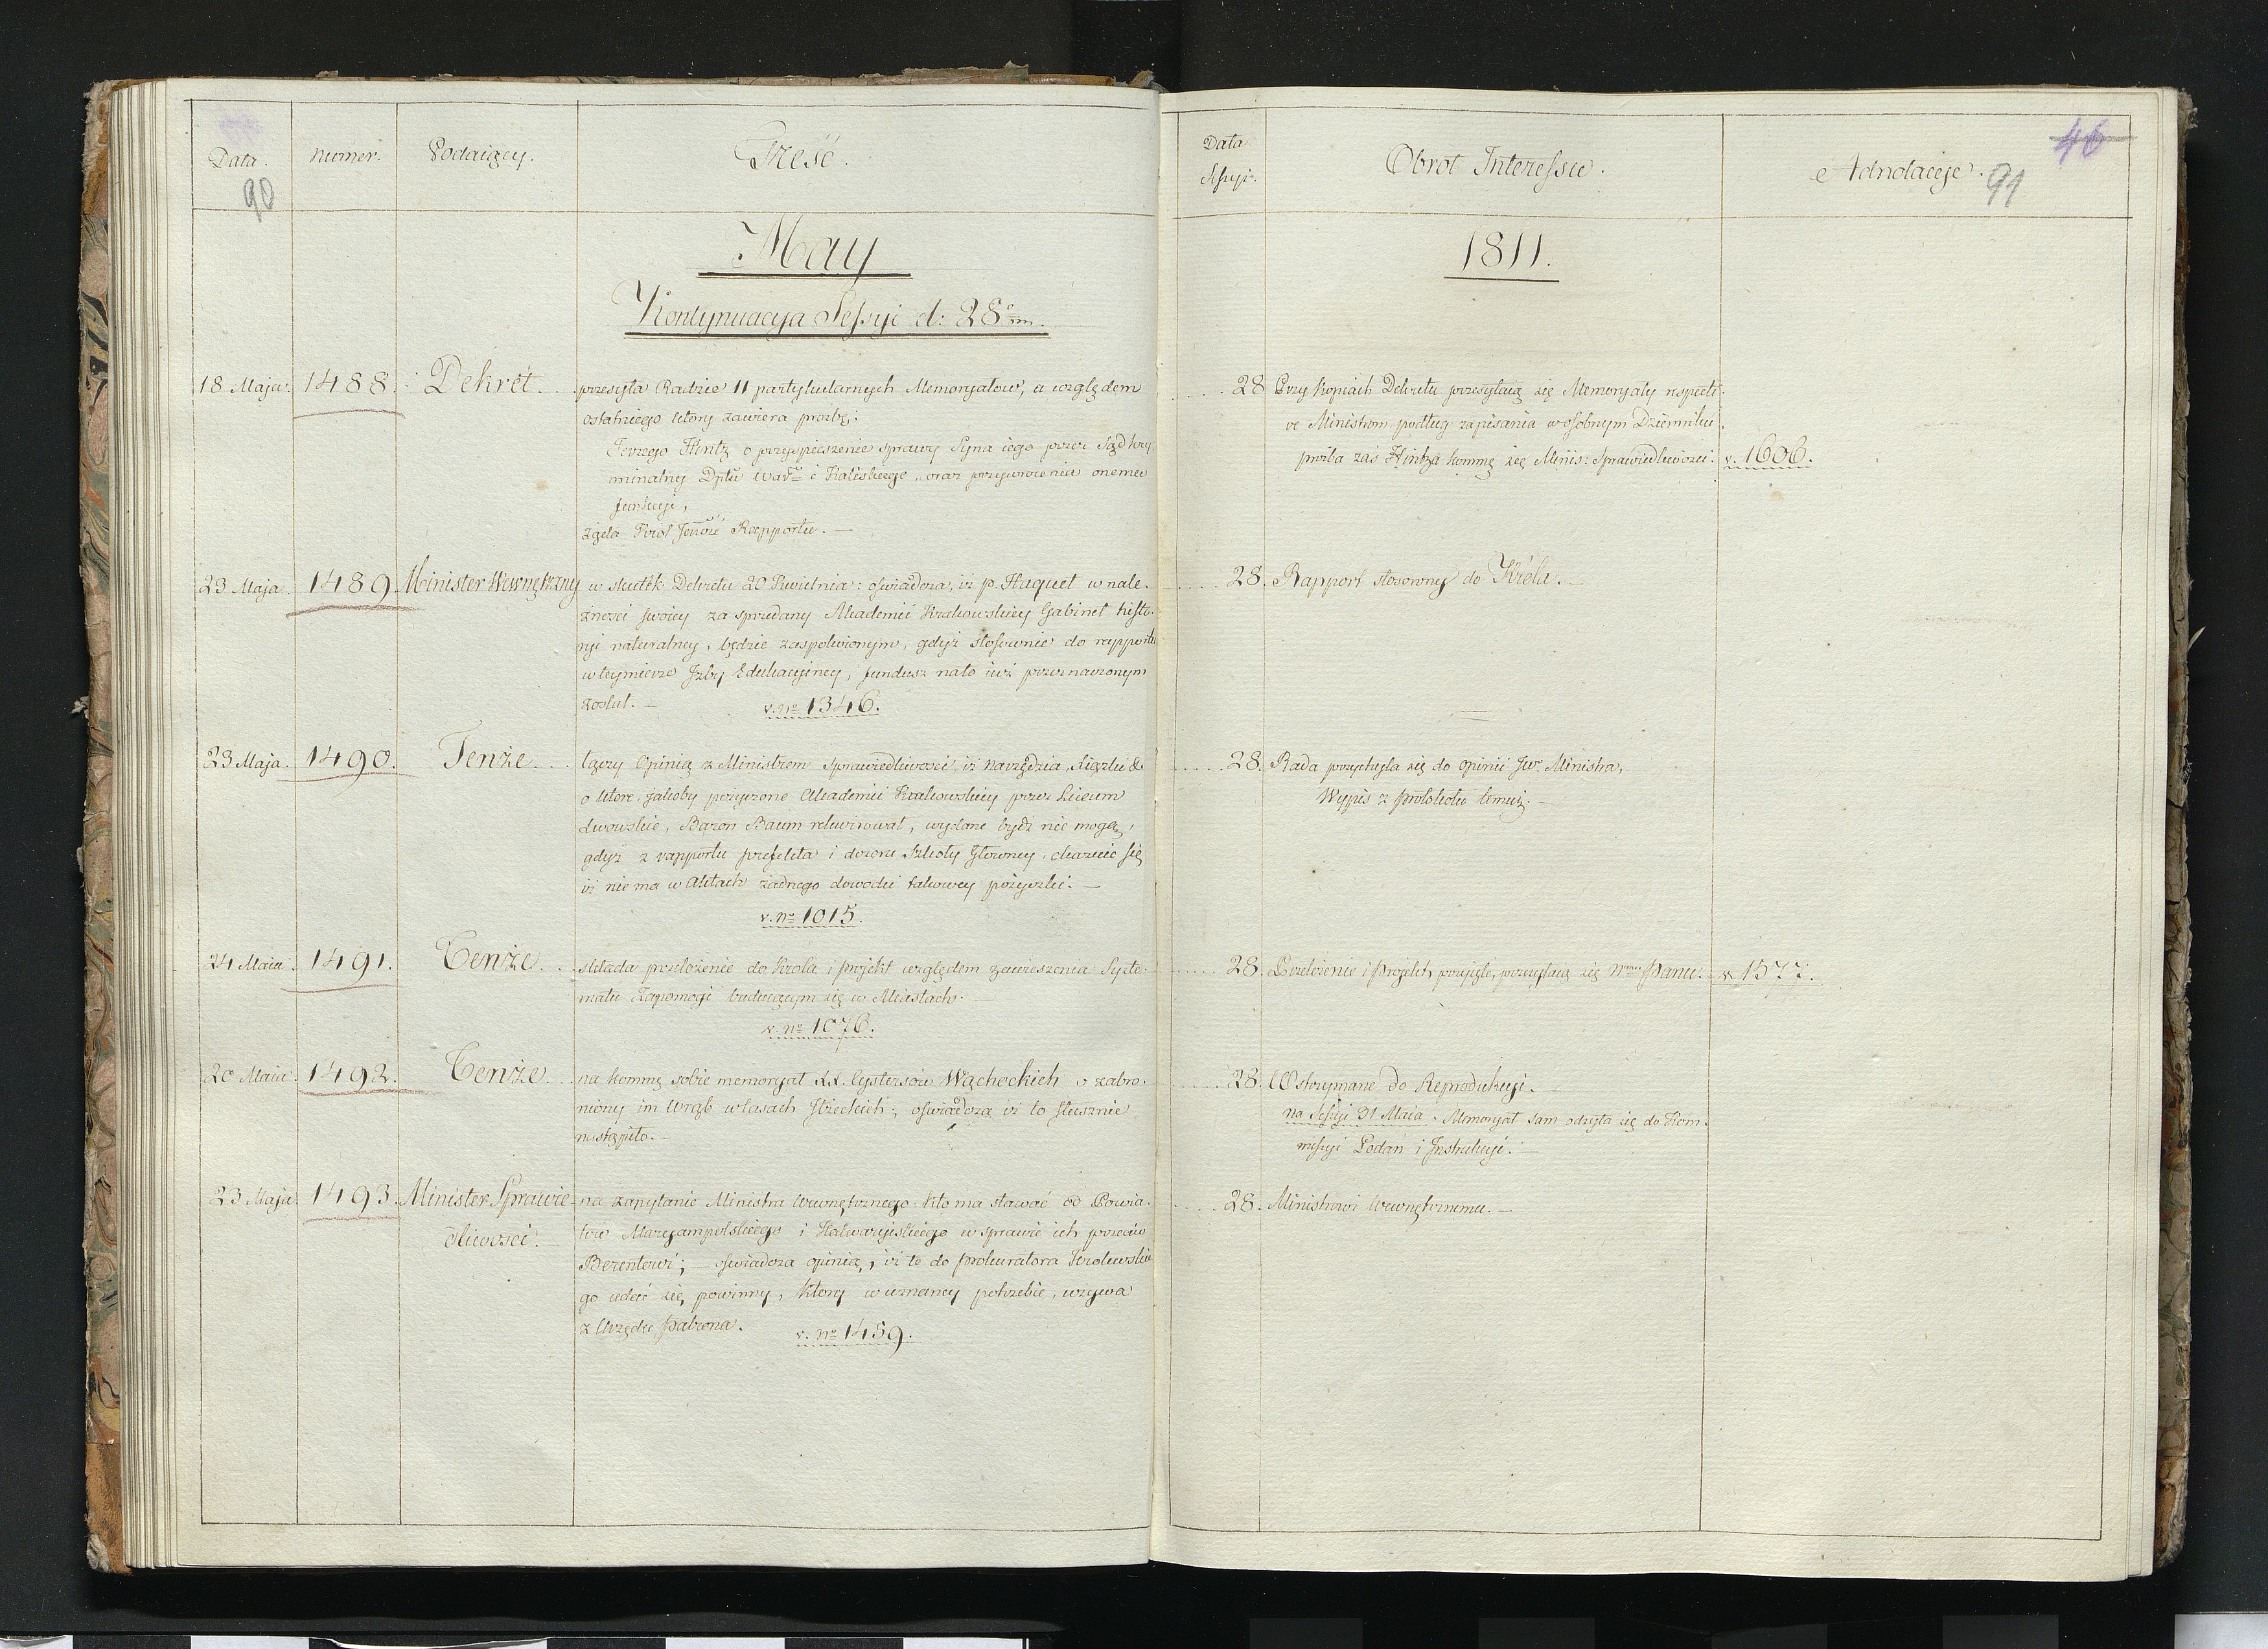 Data.
Numer.
Podaiący.
Treść.
90
May
Kontynuacya Sessyi d: 28º m.
18 Maja.
1488.
Dekret.
przesyła Radzie 11 partykularnych Memoryałow, a względem
ostatniego ktory zawiera prozbę:
Jerzego Hintz o przyspieszenie sprawy Syna iego przez Sąd kry-
minalny Dptu Warº i Kaliskiego, oraz przywrocenia onemu
funkcyi,
żąda Krol Rapportu. —
23 Maja.
1489
Minister Wewnętrzny
w skutek Dekretu 20 Kwietnia: oświadcza, iż p. Haquet w nale-
żności swoiey za sprzedany Akademii Krakowskiey Gabinet histo-
ryi naturalney, będzie zaspokoionym, gdyż stosownie do rapportu
w teymierze Jzby Edukacyiney, fundusz nato iuż przeznaczonym
został. —
v. nº 1346.
23 Maja.
1490.
Tenże.
łączy Opinią z Ministrem Sprawiedliwości, iż narzędzia, Książki &
o ktore, jakoby pożyczone Akademii Krakowskiey przez Liceum
Lwowskie, Baron Baum rekwirował, wydane bydź nie mogą,
gdyż z rapportu prefekta i dozoru Szkoły Głowney, okazuie się
iż nie ma w Aktach żadnego dowodu takowey pożyczki. —
v. nº 1015.
24 Maia.
1491.
Tenże.
składa przełożenie do Krola i projekt względem zawieszenia Syste-
matu Zapomogi buduiącym się w Miastach. —
v. nº 1076.
20 Maia.
1492.
Tenże.
na kommę sobie memoryał XX. Cystersów Wąchockich o zabro-
niony im Wrąb w lasach Jłżeckich:, oświadcza iż to słusznie
nastąpiło. —
23 Maja.
1493.
Minister Sprawie-
dliwości. —
na zapytanie Ministra Wewnętrznego: Kto ma stawać od Powia-
tów Maryampolskiego i Kalwaryiskiego w sprawie ich przeciw
Berentowi; — oświadcza opinią, iż te do prokuratora Krolewskie
go udać się powinny, ktory w uznaney potrzebie, wzywa
z Urzędu patrona.
v. nº 1459.
Data
Sessyi.
Obrot Interessu.
Adnotacye.
46
91
1811.
28
Przy kopiach Dekretu przesyłaią się Memoryały respecti-
ve Ministrom podług zapisania w osobnym Dzienniku,
prośba zaś Hintza kommę się Minis: Sprawiedliwości.
v. 1606.
28.
Rapport stosowny do Króla. —
28.
Rada przychyla się do opinii Jwº Ministra,
Wypis z protokołu temuż. —
28.
Przełożenie i Projekt przyięte, przesyłaią się Panu.
v. 1577.
28.
Wstrzymane do Reprodukcyi. —
na Sessyi 31 Maia. Memoryał sam odsyła się do Kom-
missyi Podań i Instrukcyi. —
28.
Ministrowi Wewnętrznemu. —